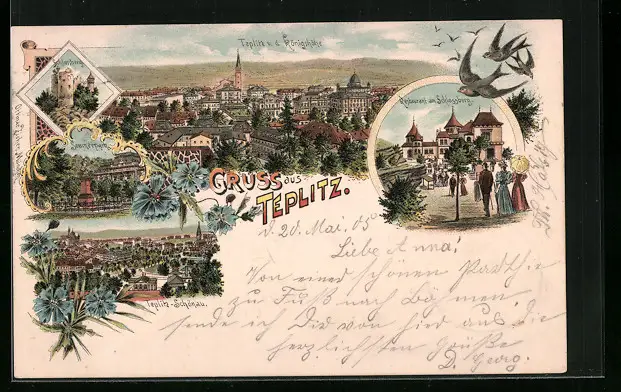 Teplitz v. d. Königshöhe
Schlossberg
Restaurant am Schlossberg.
GRUSS aus
TEPLITZ.
Teplitz-Schönau.
d. 20. Mai. 05
Liebe Anna!
Von einer schönen Parthie
zu Fuß nach Böhmen,
sende ich Dir von hier aus die
herzlichsten Grüße
D. Georg.